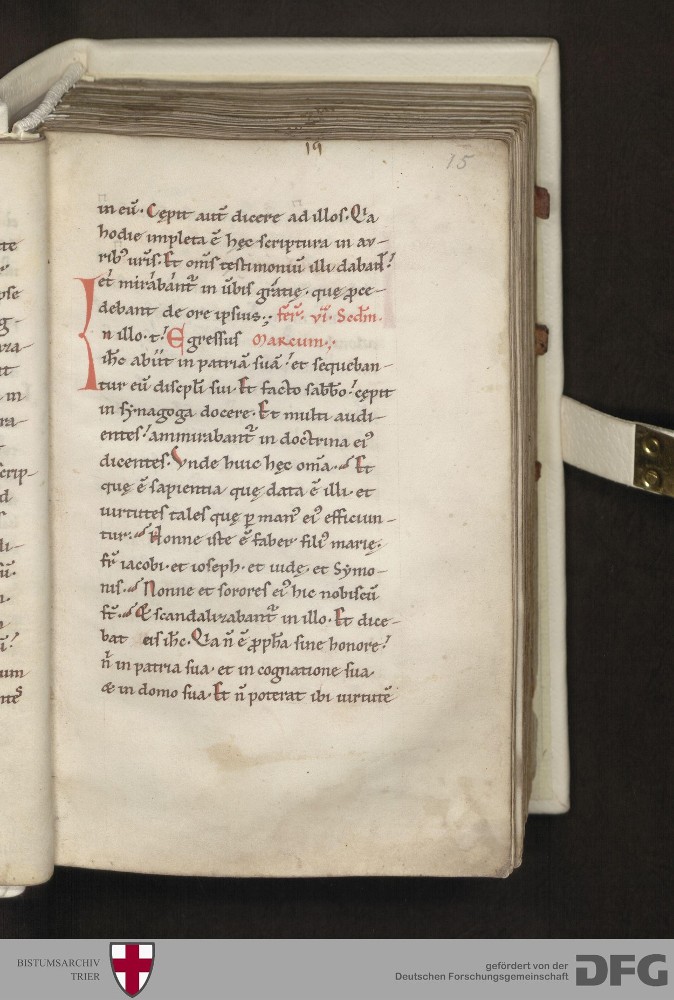 19
15
in eū. Cępit autē dicere ad illos. Qͥa
hodie impleta ē hęc scriptura in au-
ribꝰ urīs. Et om̄s testimoniū illi dabant̄!
et mirabant᷑ in ūbis gratię. que ꝓce-
debant de ore ipsius.; fer̄. vi. Scd̄m.
In illo. t! Egressus MARCUM.;
ih̄c abiit in patriā suā! et sequeban-
tur eū discipl̄i sui. Et facto sabb̄o! cępit
in synagoga docere. Et multi audi-
entes! ammirabant᷑ in doctrina eiꝰ
dicentes. Vnde huic hęc om̄a. Et
quę ē sapientia quę data ē illi. et
uirtutes tales quę ꝑ manꝰ eiꝰ efficiun-
tur. Nonne iste ē faber filiꝰ marię.
fr̄ iacobi. et ioseph. et iudę. et Symo-
nis. Nonne et sorores eiꝰ hic nobiscū
st̄. & scandalizabant᷑ in illo. Et dice-
bat eis ih̄c. Qͥa ñ ē ꝓpħa sine honore!
n̄ in patria sua. et in cognatione sua
& in domo sua. Et ñ poterat ibi uirtutē
BISTUMSARCHIV
TRIER
gefördert von der
Deutschen Forschungsgemeinschaft
DFG